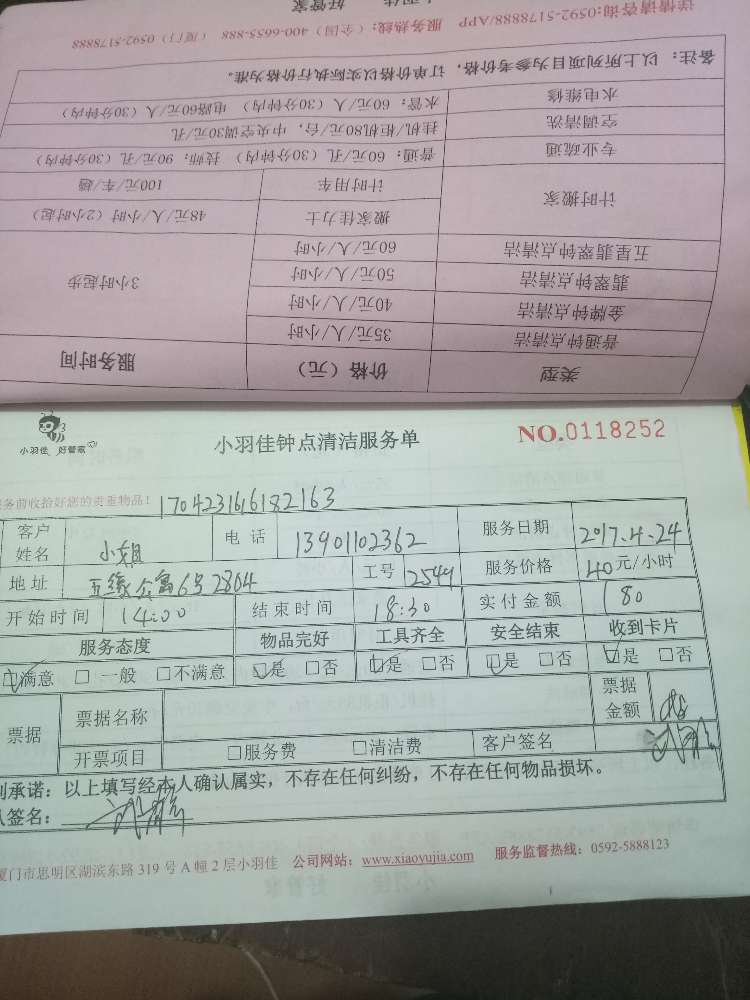 类型 价格（元） 服务时间
普通钟点清洁 35元/人/小时 3小时起步
金牌钟点清洁 40元/人/小时
翡翠钟点清洁 50元/人/小时
五星翡翠钟点清洁 60元/人/小时
计时搬家 搬家佳力士 48元/人/小时（2小时起）
计时用车 100元/车/趟
专业疏通 普通：60元/孔（30分钟内） 技师：90元/孔（30分钟内）
空调清洗 挂机/柜机80元/台，中央空调30元/孔
水电维修 水管：60元/人（30分钟内） 电路60元/人（30分钟内）
备注：以上所列项目为参考价格，订单价格以实际执行价格为准。
详情请咨询:0592-5178888/APP 服务热线：(全国) 400-6655-888 (厦门) 0592-5178888
好管家
小羽佳 好管家
小羽佳钟点清洁服务单 NO.0118252
务前收拾好您的贵重物品！ 170423161618 2163
客户姓名 小姐 电话 13901102362 服务日期 2017.4.24
地址 五缘公寓6号2804 工号 2544 服务价格 40元/小时
开始时间 14:00 结束时间 18:30 实付金额 180
服务态度 物品完好 工具齐全 安全结束 收到卡片
☑满意 □一般 □不满意 ☑是 □否 ☑是 □否 ☑是 □否 ☑是 □否
票据 票据名称 票据金额
开票项目 □服务费 □清洁费 客户签名
承诺：以上填写经本人确认属实，不存在任何纠纷，不存在任何物品损坏。
签名：
厦门市思明区湖滨东路 319 号 A 幢 2 层小羽佳 公司网站：www.xiaoyujia.com 服务监督热线：0592-5888123